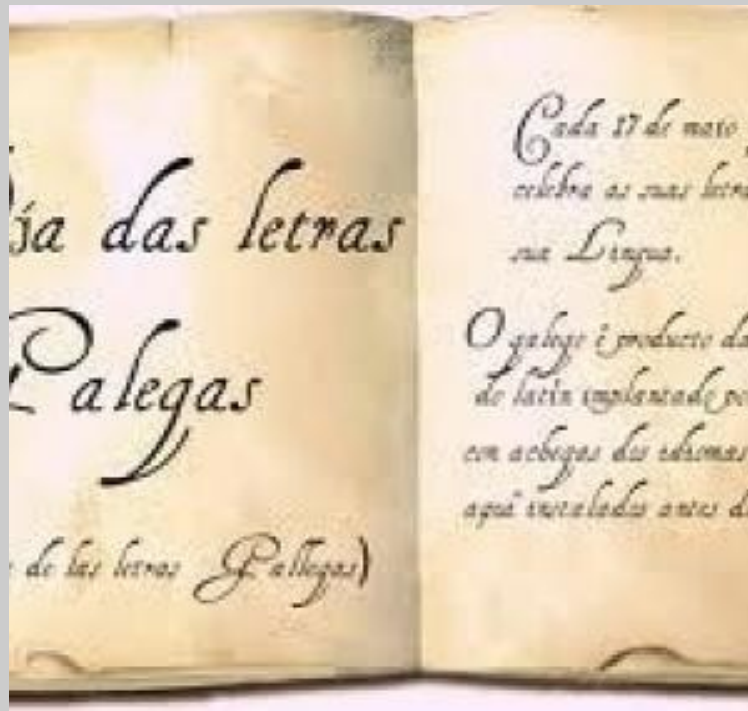 ja das letras
Galegas
de las letras Gallegas)
Cada 17 de maio
celebra as suas letra
sua Lingua.
O galego é producto da
do latín implantado po
con achegas dos idiomas
aquí instalados antes d